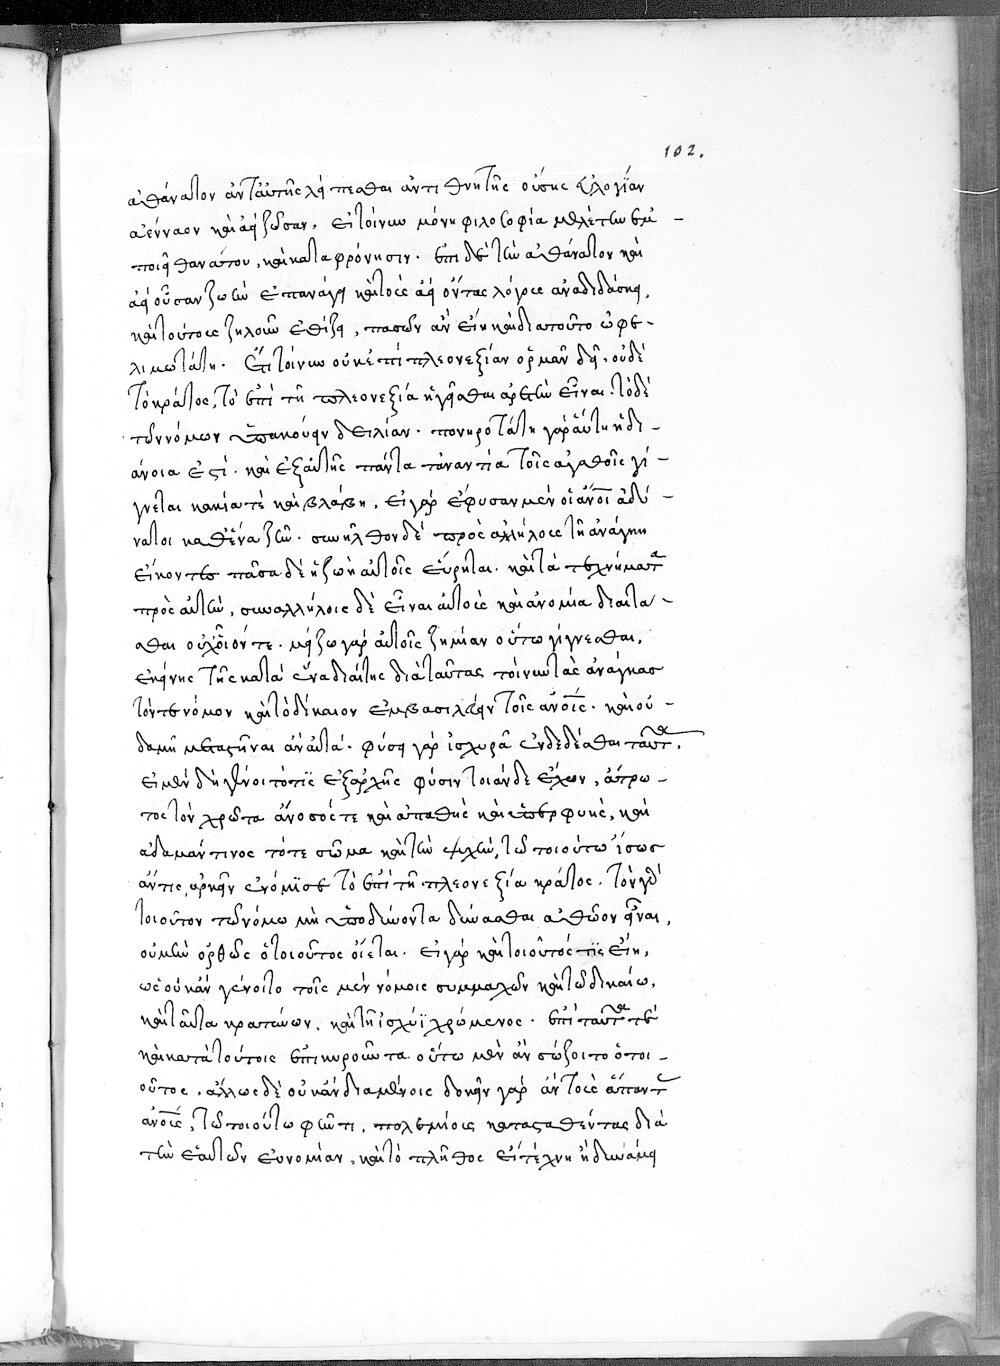 102.
ἀθάνατον ἀντ αὐτῆς λείπεσθαι ἀντὶ θνητῆς οὔσης εὐλογίαν
ἀένναον καὶ ἀεὶ ζῶσαν. εἰ τοίνυν μόνη φιλοσοφία μελέτην ἐμ-
ποιεῖ θανάτου, καὶ καταφρόνησιν. ἐπὶ δὲ τὴν ἀθάνατον καὶ
ἀεὶ οὖσαν ζωὴν ἐπανάγει καὶ τοὺς ἀεὶ ὄντας λόγους ἀναδιδάσκει,
καὶ τούτους ζηλοῦν ἐθίζει, πασῶν ἂν εἴη καὶ διὰ τοῦτο ὠφε-
λιμωτάτη. ἔτι τοίνυν οὐκ ἐπὶ πλεονεξίαν ὁρμᾶν δεῖ, οὐδὲ
τὸ κράτος, τὸ ἐπὶ τῇ πλεονεξία ἡγεῖσθαι ἀρετὴν εἶναι. τὸ δὲ
τῶν νόμων ὑπακούειν δειλίαν. πονηροτάτη γὰρ αὕτη ἡ δι-
άνοια ἐστί. καὶ ἐξ αὐτῆς πάντα τἀναντία τοῖς ἀγαθοῖς γί-
γνεται κακία τὲ καὶ βλάβη. εἰ γὰρ ἔφυσαν μὲν οἱ ἄνοι ἀδύ-
νατοι καθ' ἕνα ζῆν. συνῆλθον δὲ πρὸς ἀλλήλους τῇ ἀνάγκη
εἴκοντες πᾶσα δὲ ἡ ζωὴ αὐτοῖς εὕρηται. καὶ τὰ τεχνήματα
πρὸς αὐτὴν, σὺν ἀλλήλοις δὲ εἶναι αὐτοὺς καὶ ἀνομία διαιτᾶ-
σθαι οὐχ οἷόν τε. μείζω γὰρ αὐτοῖς ζημίαν οὕτω γίγνεσθαι,
ἐκείνης τῆς κατὰ ἕνα διαίτης διὰ ταύτας τοίνυν τὰς ἀνάγκας
τόν τε νόμον καὶ τὸ δίκαιον ἐμβασιλεύειν τοῖς ἀνοις. καὶ οὐ-
δαμῆ μεταστῆναι ἂν αὐτά. φύσει γὰρ ἰσχυρᾶ ἐνδεδέσθαι ταῦτα.
εἰ μὲν δὴ γένοιτό τις ἐξ ἀρχῆς φύσιν τοιάνδε ἔχων, ἄτρω-
τος τὸν χρῶτα ἄνοσός τε καὶ ἀπαθὴς καὶ ὑπερφυὴς, καὶ
ἀδαμάντινος τό τε σῶμα καὶ τὴν ψυχὴν, τῶ τοιούτω ἴσως
ἄν τις ἀρκεῖν ἐνόμισε τὸ ἐπὶ τῇ πλεονεξία κράτος. τὸν γὰρ
τοιοῦτον τῶ νόμω μὴ ὑποδύνοντα δύνασθαι ἀθῶον εἶναι,
οὐ μὴν ὀρθῶς ὁ τοιοῦτος οἴεται. εἰ γὰρ καὶ τοιοῦτός τις εἴη,
ὡς οὐκ ἂν γένοιτο τοῖς μὲν νόμοις συμμαχῶν καὶ τῶ δικαίω,
καὶ ταῦτα κρατύνων, καὶ τῇ ἰσχύϊ χρώμενος. ἐπὶ ταῦτα τὲ
καὶ κατὰ τούτοις ἐπικυροῦντα οὕτω μὲν ἂν σώζοιτο ὁ τοι-
οῦτος, ἄλλως δὲ οὐκ ἂν διαμένοις δοκεῖν γὰρ ἂν τοὺς ἅπαντας
ἀνους, τῶ τοιούτω φῶτι, πολεμίους κατασταθέντας διὰ
τὴν ἑαυτῶν εὐνομίαν, καὶ τὸ πλῆθος εἴτ τέχνη ἢ δυνάμει